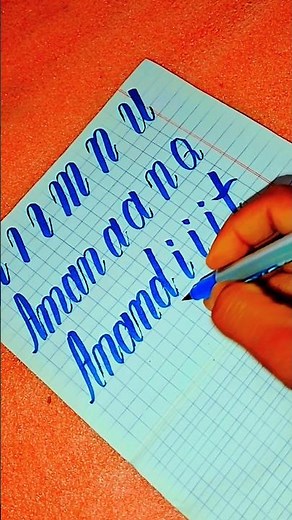 ı ı ı m n u
Aman a a n a
Anand i i i t